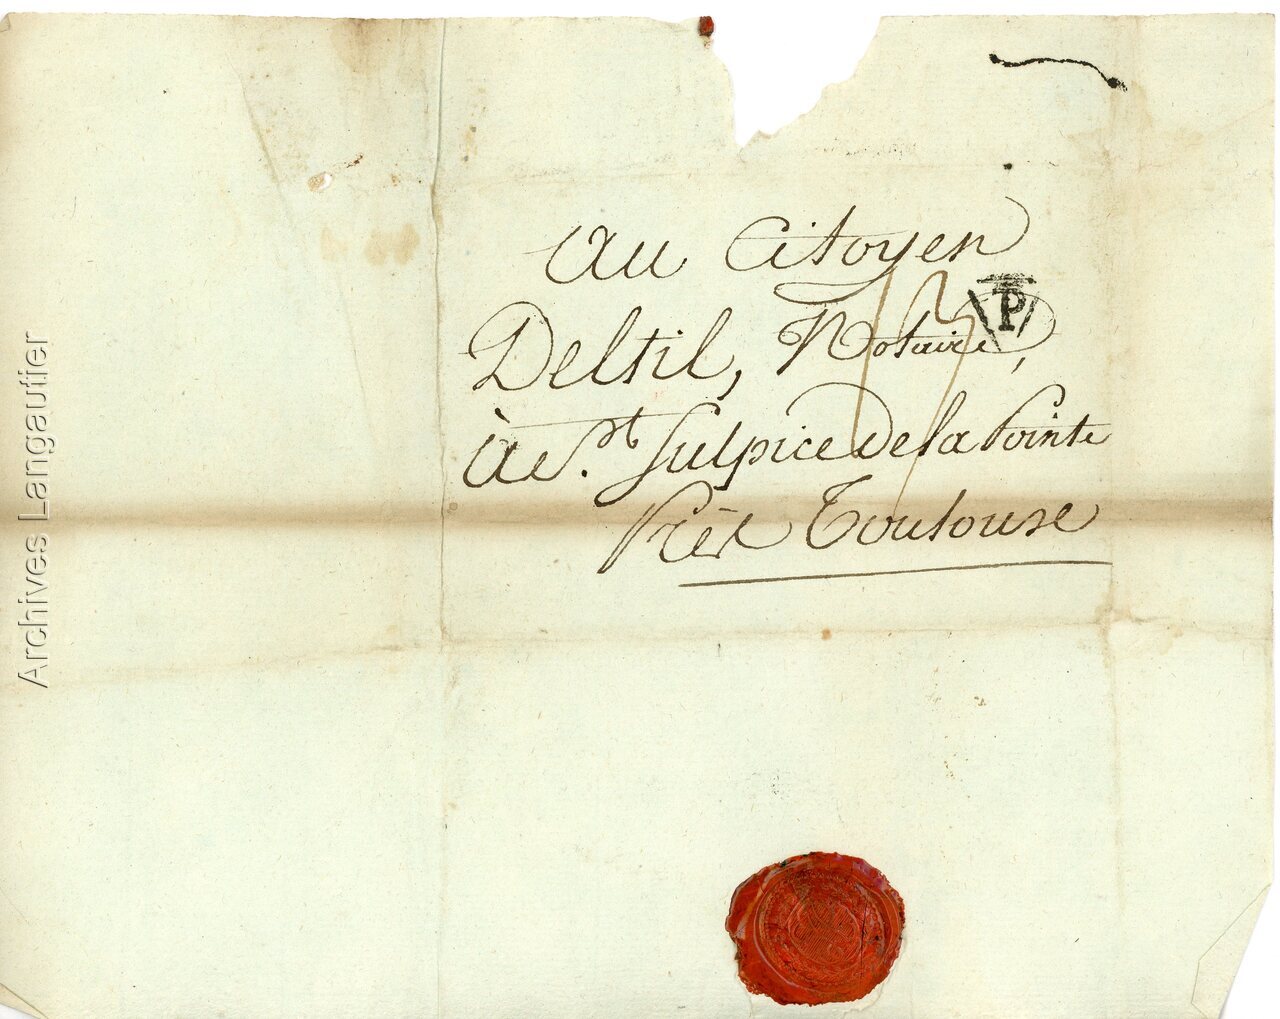 Au Citoyen
Deltil, Notaire,
à St. Sulpice de la Pointe
Près Toulouse
13
P
Archives Langautier